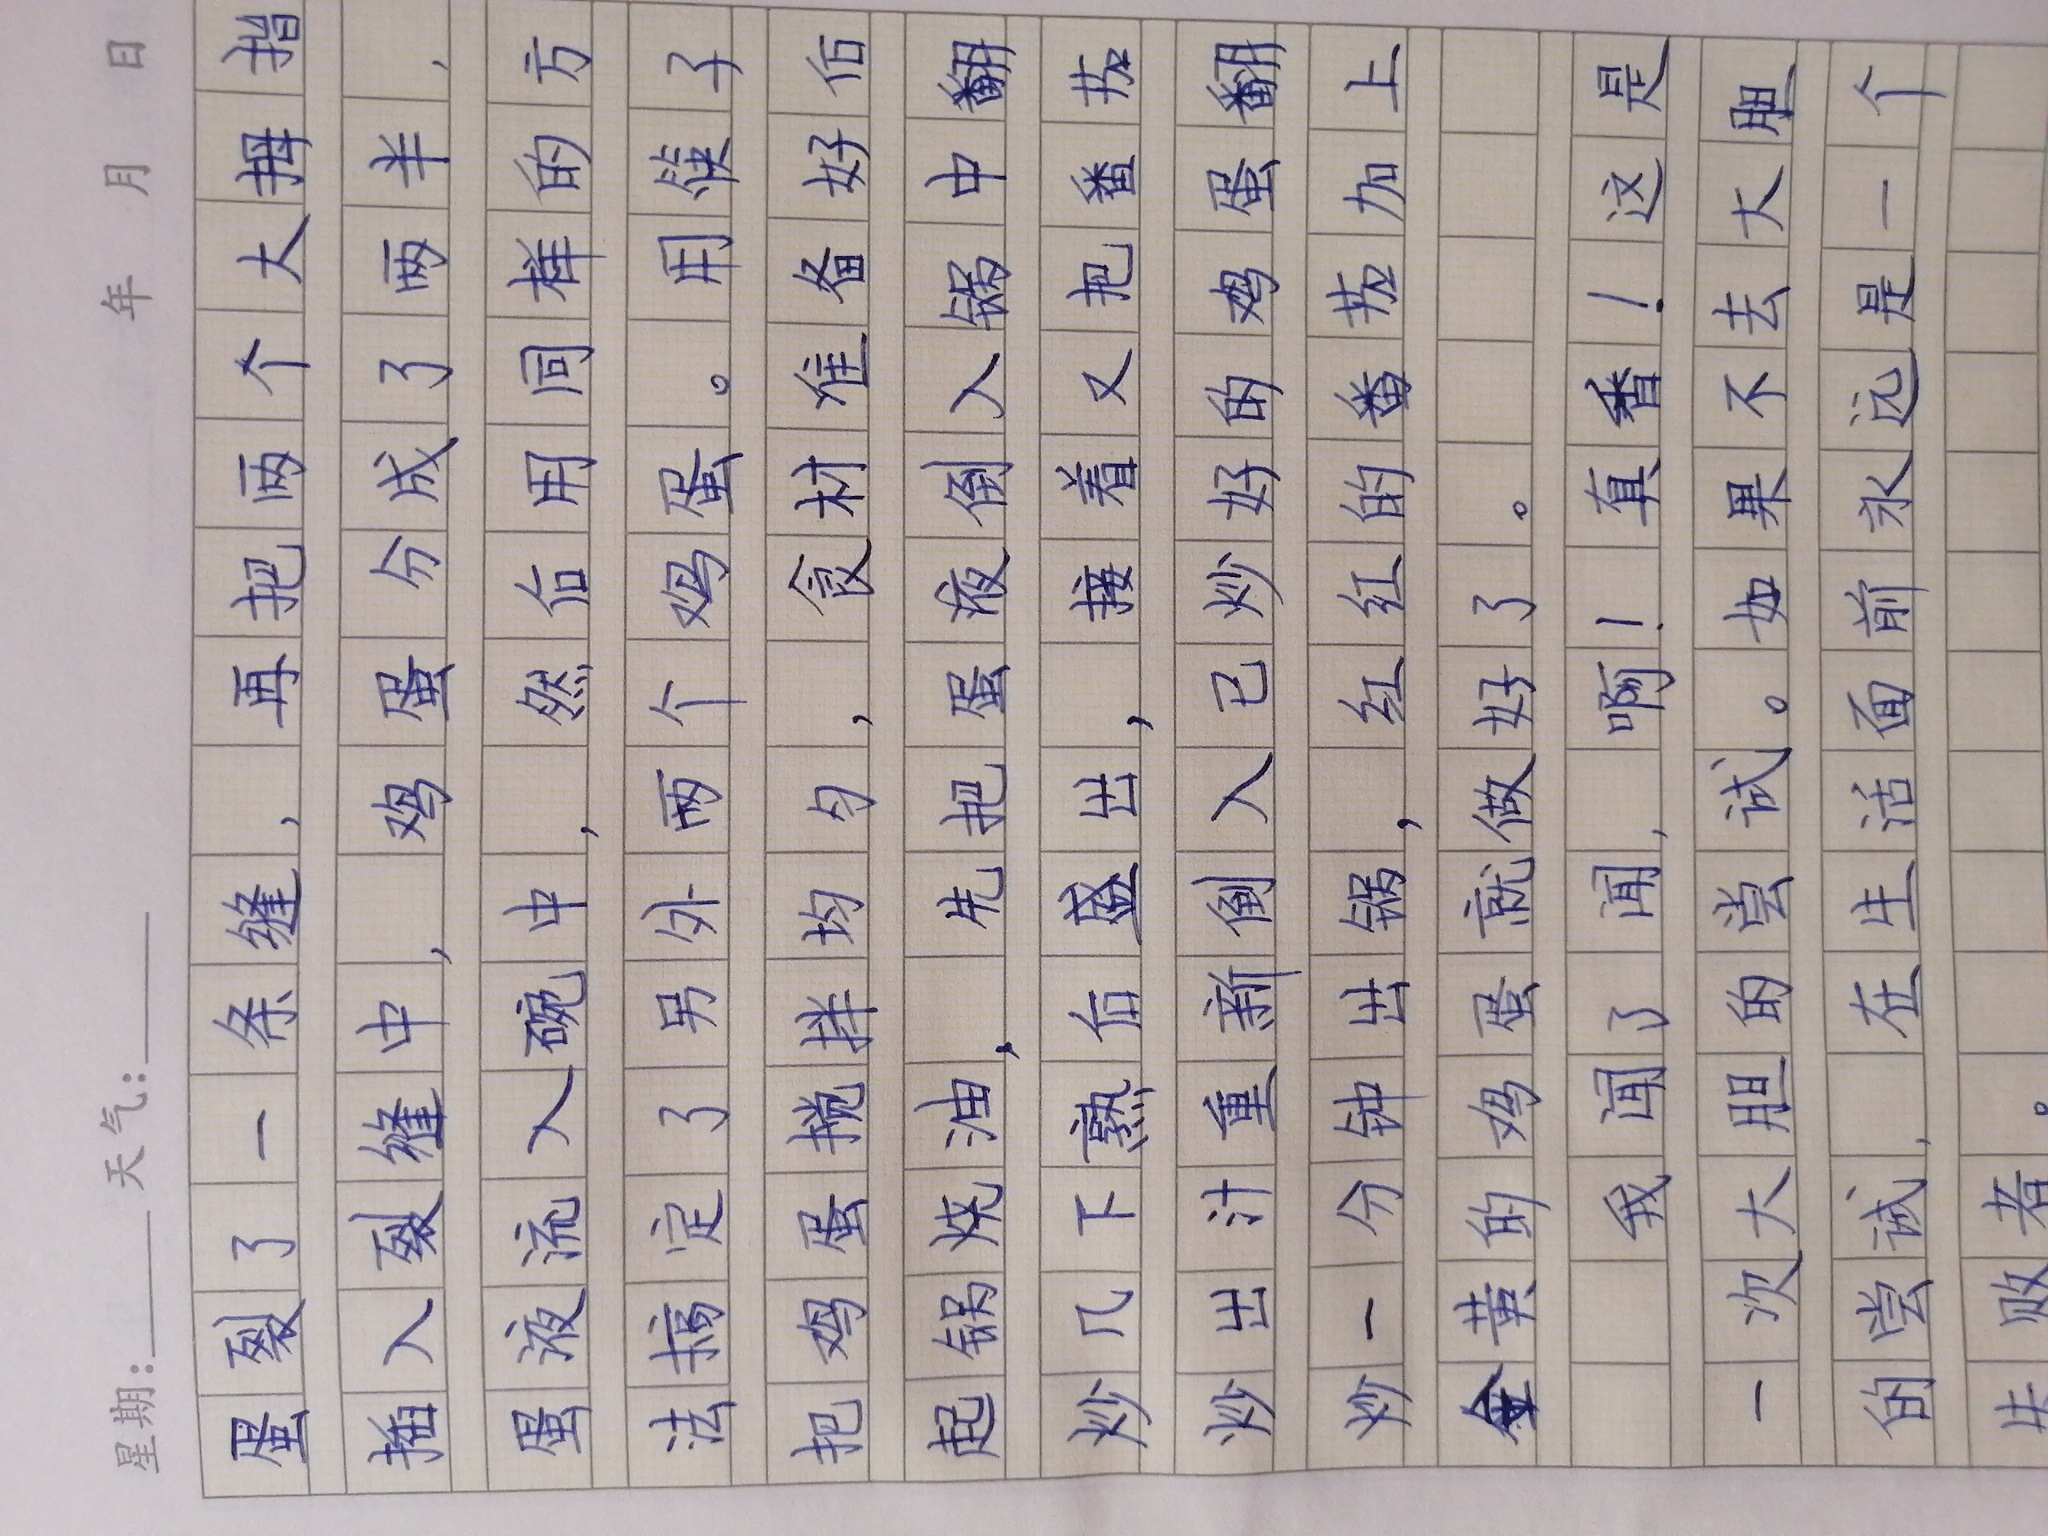 星期: 天气: 年 月 日
蛋裂了一条缝,再把两个大拇指
插入裂缝中,鸡蛋分成了两半,
蛋液流入碗中,然后用同样的方
法搞定了另外两个鸡蛋。用筷子
把鸡蛋搅拌均匀,食材准备好后
起锅烧油,先把蛋液倒入锅中翻
炒几下熟后盛出,接着又把番茄
炒出汁重新倒入已炒好的鸡蛋翻
炒一分钟出锅,红红的番茄加上
金黄的鸡蛋就做好了。
我闻了闻,啊!真香!这是
一次大胆的尝试。如果不去大胆
的尝试,在生活面前永远是一个
失败者。